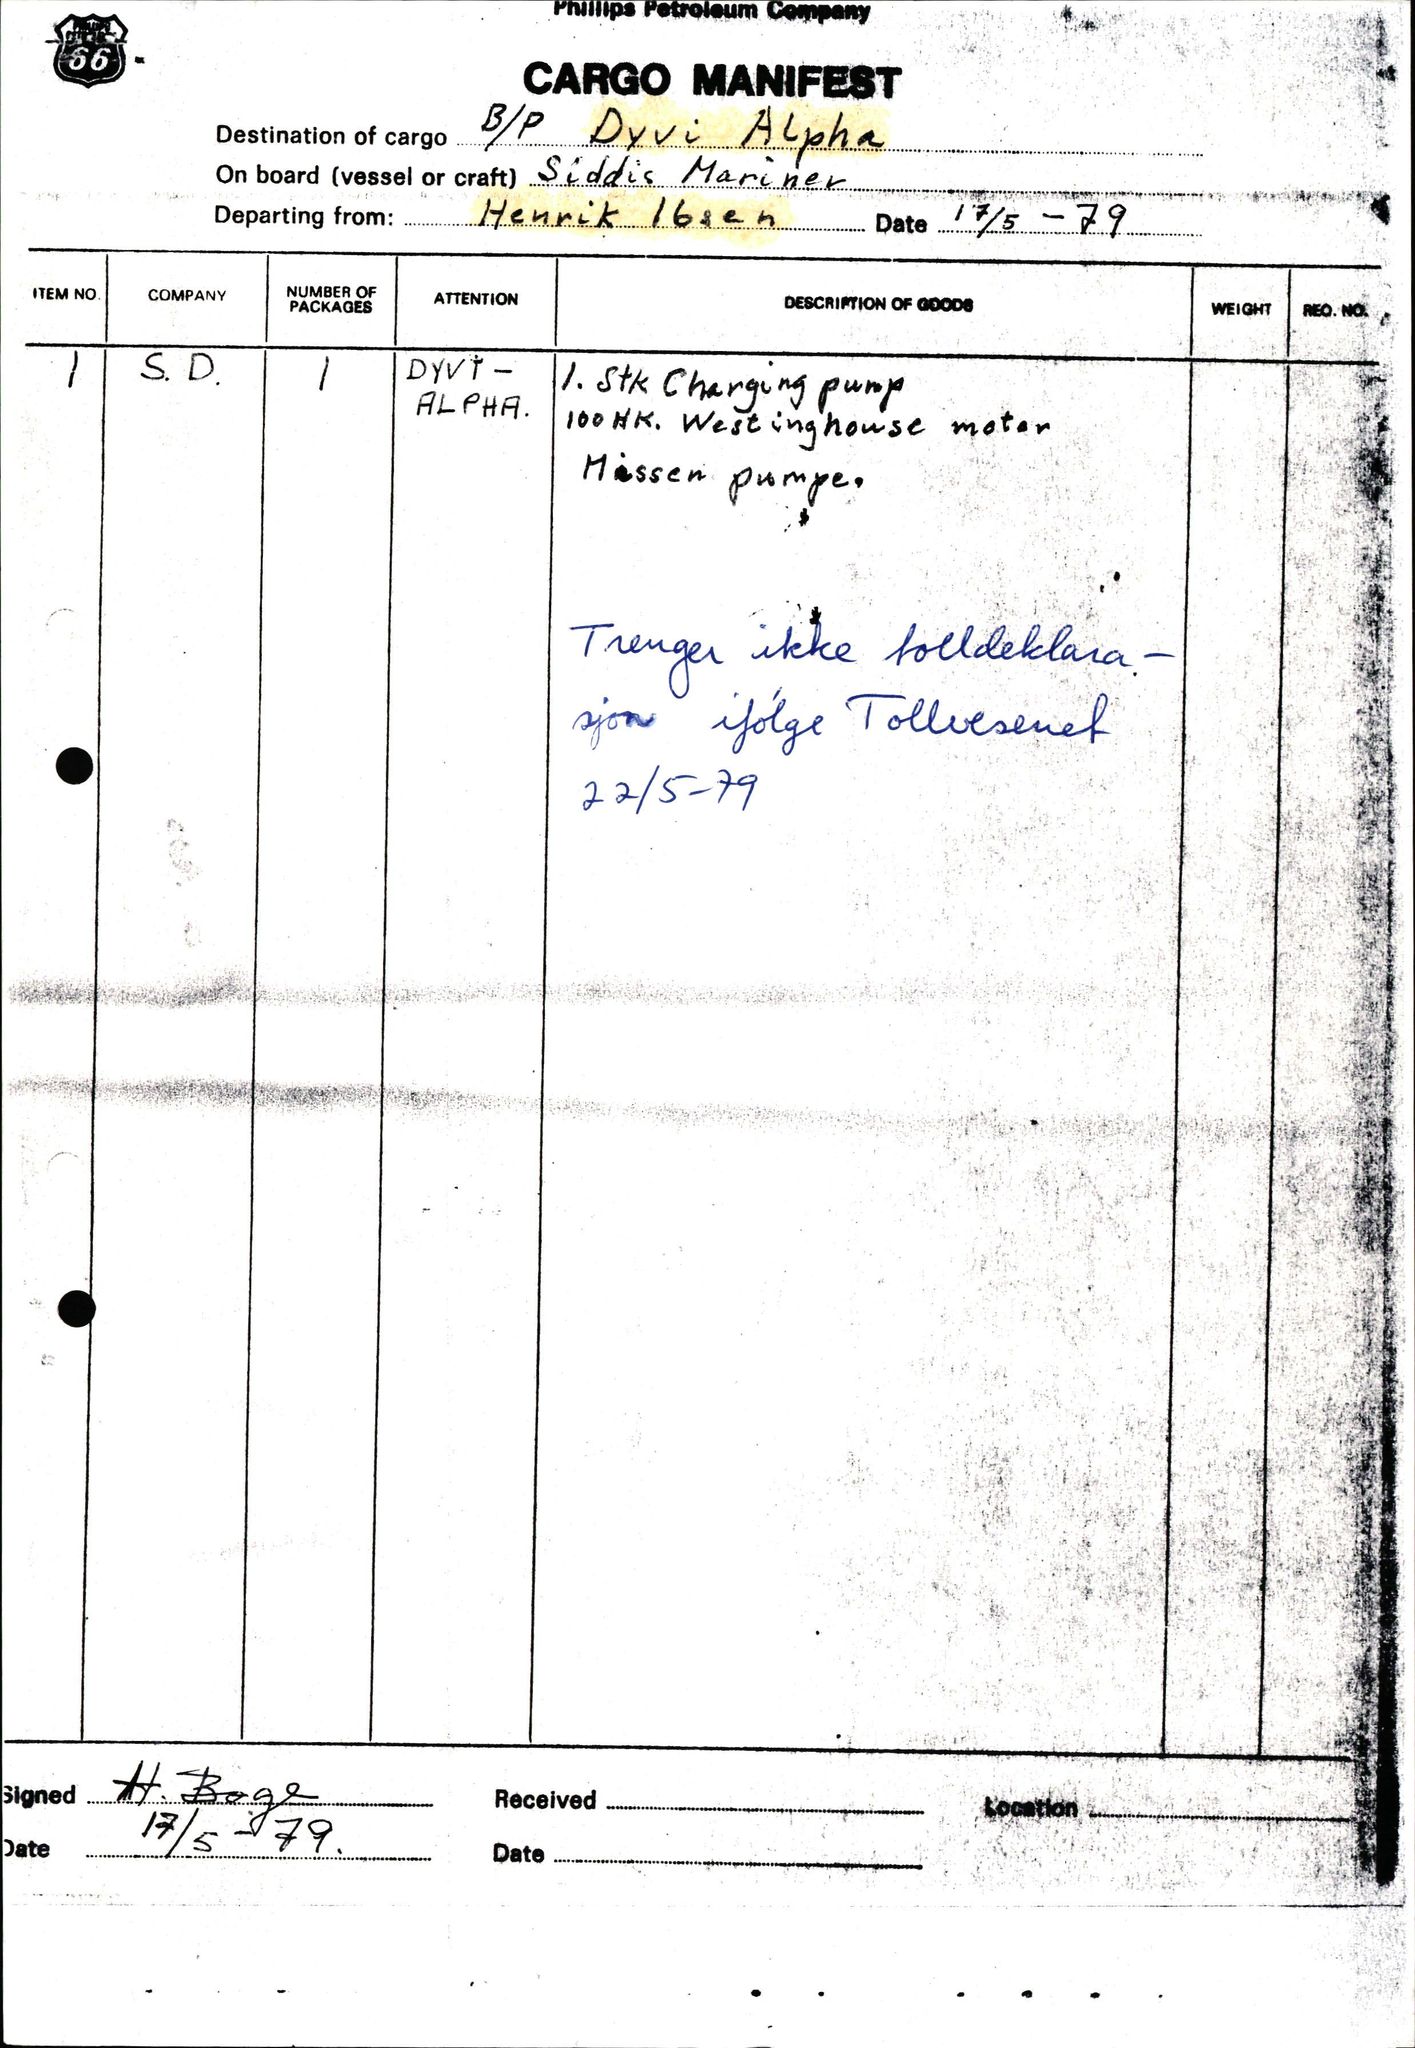 Phillips Petroleum Company
66
CARGO MANIFEST
Destination of cargo B/P Dyvi Alpha
On board (vessel or craft) Siddis Mariner
Departing from: Henrik Ibsen Date 17/5 - 79
ITEM NO. COMPANY NUMBER OF PACKAGES ATTENTION DESCRIPTION OF GOODS WEIGHT REQ. NO.
1 S. D. 1 DYVI- 1. Stk Charging pump
ALPHA. 100 HK. Westinghouse motor
Missen pumpe.
Trenger ikke tolldeklara-
sjon ifølge Tollvesenet
22/5-79
Signed H. Bøge Received Location
Date 17/5 - 79. Date